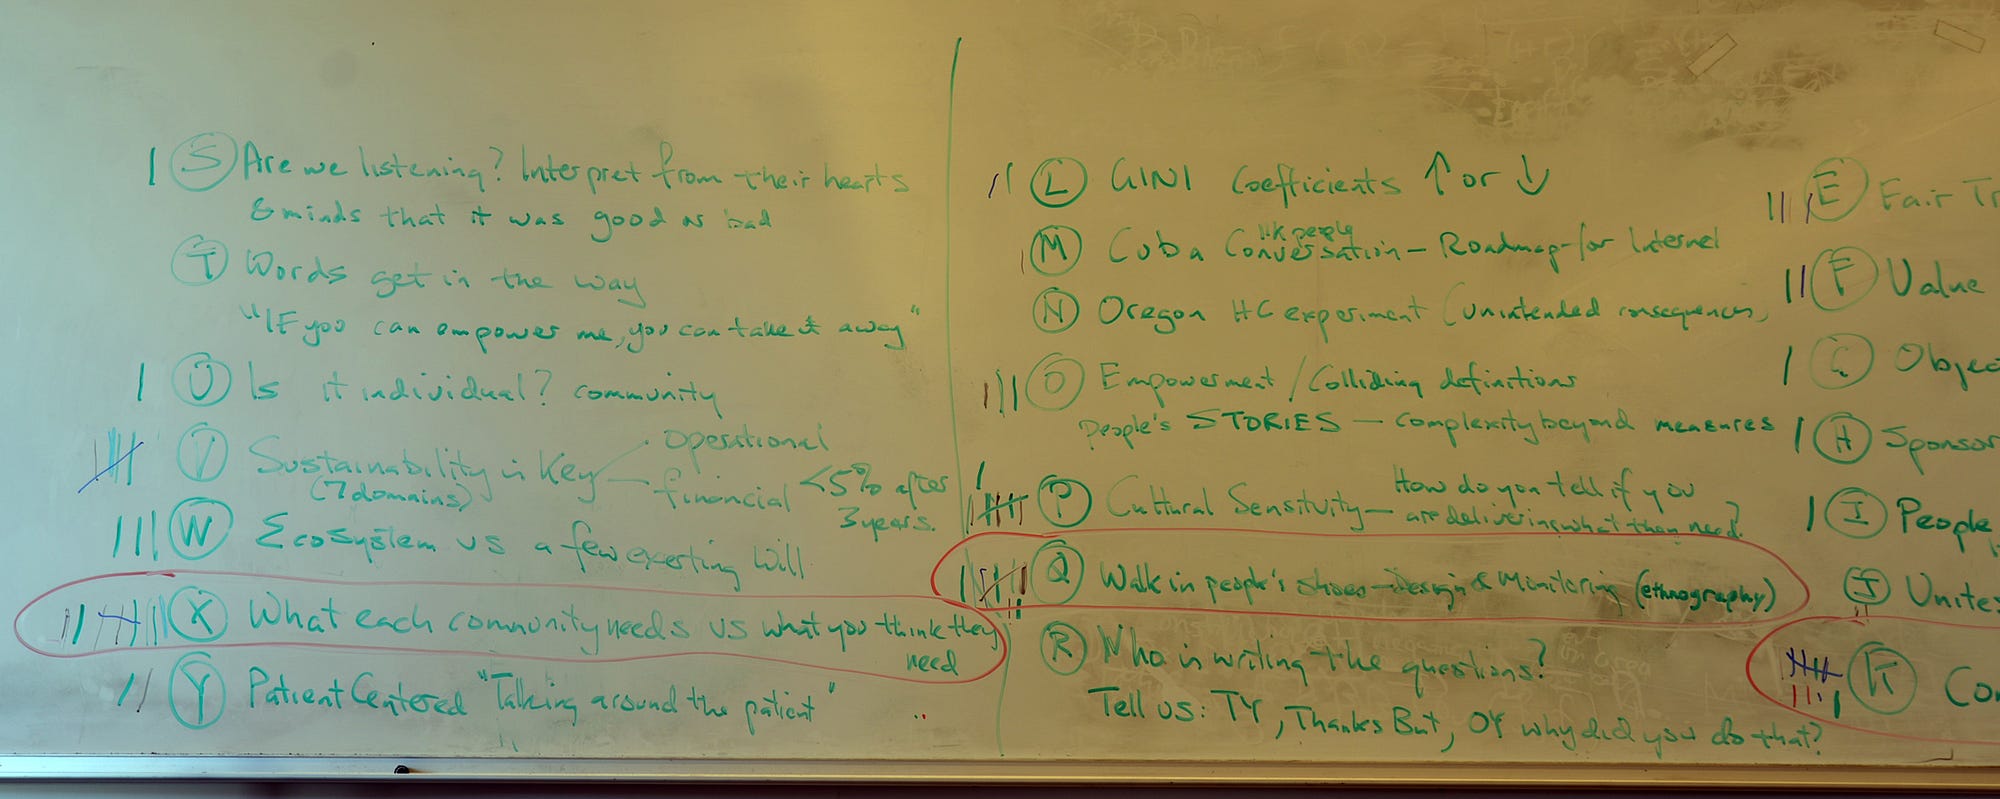 S Are we listening? Interpret from their hearts
& minds that it was good or bad
T Words get in the way
"If you can empower me, you can take it away"
U Is it individual? community
V Sustainability is Key
(7 domains)
operational
financial <5% after
3 years.
W Ecosystem vs a few exerting will
X What each community needs vs what you think they
need
Y Patient Centered "Talking around the patient"
L GINI Coefficients ↑ or ↓
M Cuba Conversation – Roadmap for Internet
people
N Oregon HC experiment (unintended consequences)
O Empowerment / Colliding definitions
People's STORIES – complexity beyond measures
P Cultural Sensitivity – How do you tell if you
are delivering what they need?
Q Walk in people's shoes – Design & Monitoring (ethnography)
R Who is writing the questions?
Tell us: TY, Thanks But, OY why did you do that?
E Fair Tr
F Value
G Objec
H Sponsor
I People
J Unites
K Co